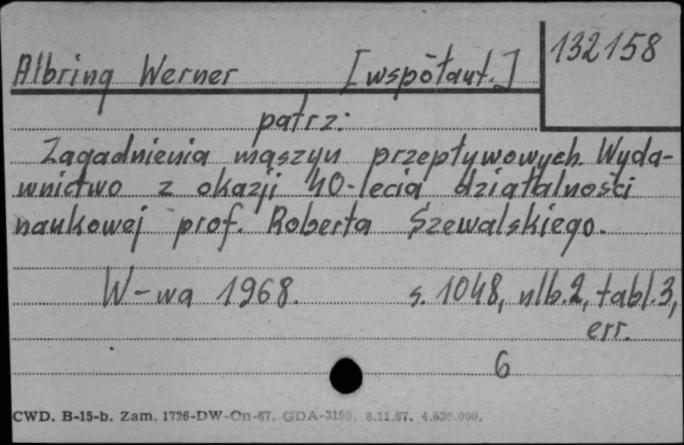 132158
Albring Werner [współaut.]
patrz:
Zagadnienia maszyn przepływowych. Wyda-
wnictwo z okazji 40-lecia działalności
naukowej prof. Roberta Szewalskiego.
W-wa 1968. s. 1048, nlb. 2, tabl. 3,
err.
6
CWD. B-15-b. Zam. 1726-DW-On-67. GDA-3198. 8.11.67. 4.630.000.